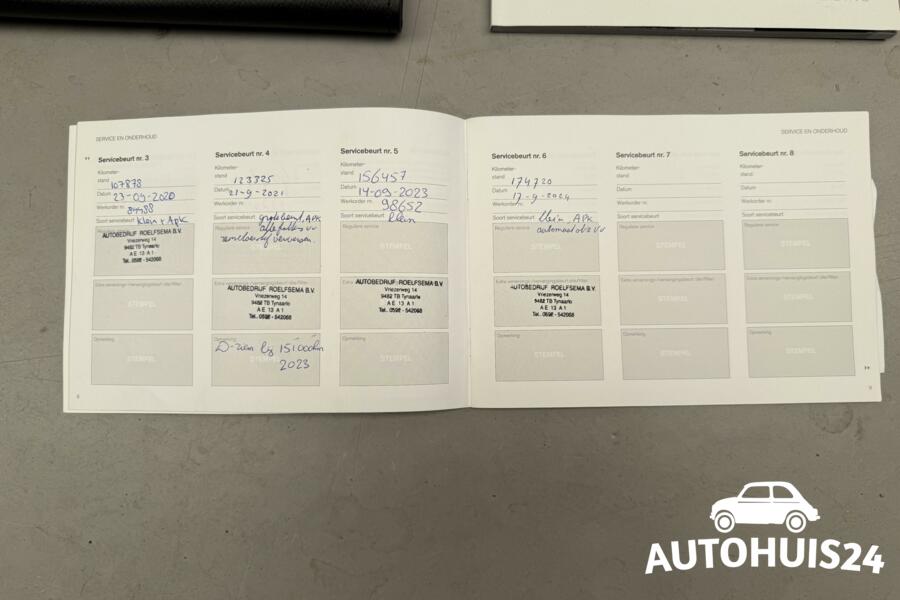 SERVICE EN ONDERHOUD
Servicebeurt nr. 3
Kilometer-
stand 107878
Datum 23-09-2020
Werkorder nr.
Soort servicebeurt klein + Apk
AUTOBEDRIJF ROELFSEMA B.V.
Vriezerweg 14
9482 TB Tynaarlo
A E 13 A 1
Tel. 0592 - 542068
STEMPEL
Opmerking
STEMPEL
8
Servicebeurt nr. 4
Kilometer-
stand 123325
Datum 21-9-2021
Werkorder nr.
Soort servicebeurt grote beurt, APK
Reguliere service alle filters vv
remvloeistof verversen.
AUTOBEDRIJF ROELFSEMA B.V.
Vriezerweg 14
9482 TB Tynaarlo
A E 13 A 1
Tel. 0592 - 542068
Opmerking
D-riem bij 151000km
2023
Servicebeurt nr. 5
Kilometer-
stand 156457
Datum 14-09-2023
Werkorder nr. 98652
Soort servicebeurt klein
Reguliere service
STEMPEL
AUTOBEDRIJF ROELFSEMA B.V.
Vriezerweg 14
9482 TB Tynaarlo
A E 13 A 1
Tel. 0592 - 542068
Opmerking
STEMPEL
SERVICE EN ONDERHOUD
Servicebeurt nr. 6
Kilometer-
stand 174720
Datum 17-9-2024
Werkorder nr.
Soort servicebeurt klein, APK
Reguliere service automaat olie vv
STEMPEL
AUTOBEDRIJF ROELFSEMA B.V.
Vriezerweg 14
9482 TB Tynaarlo
A E 13 A 1
Tel. 0592 - 542068
Opmerking
STEMPEL
Servicebeurt nr. 7
Kilometer-
stand
Datum
Werkorder nr.
Soort servicebeurt
Reguliere service
STEMPEL
STEMPEL
Opmerking
STEMPEL
Servicebeurt nr. 8
Kilometer-
stand
Datum
Werkorder nr.
Soort servicebeurt
Reguliere service
STEMPEL
STEMPEL
Opmerking
STEMPEL
9
AUTOHUIS24